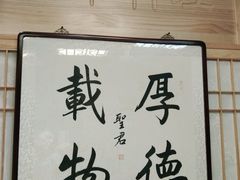 厚德
載物
聖君